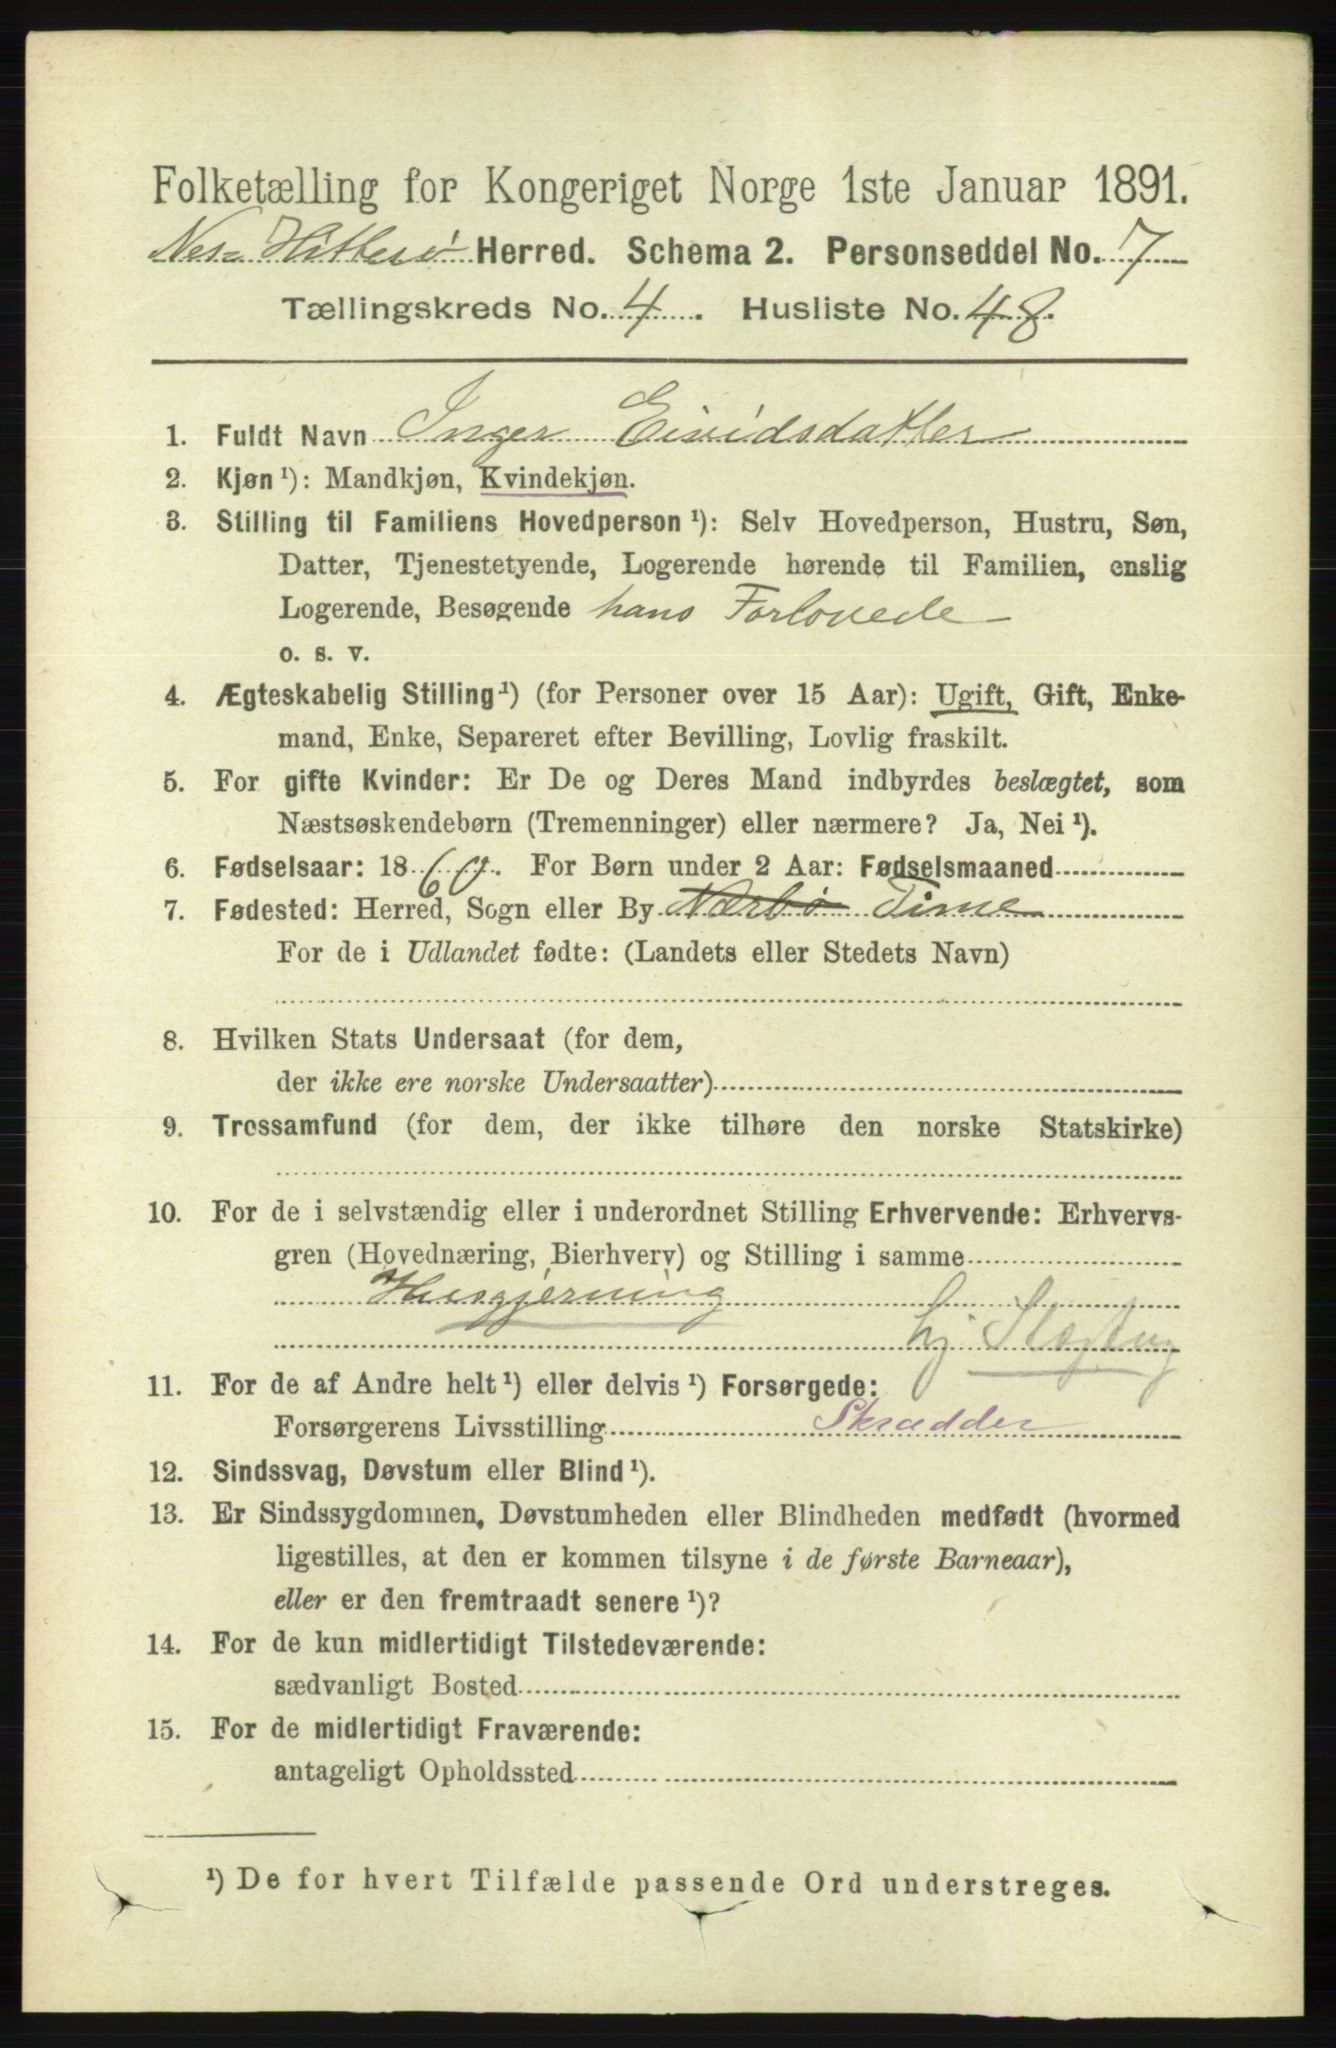 Folketælling for Kongeriget Norge 1ste Januar 1891.
Nes-Hitterø Herred. Schema 2. Personseddel No. 7
Tællingskreds No. 4. Husliste No. 48.
1. Fuldt Navn Inger Eividsdatter
2. Kjøn ¹): Mandkjøn, Kvindekjøn.
3. Stilling til Familiens Hovedperson ¹): Selv Hovedperson, Hustru, Søn,
Datter, Tjenestetyende, Logerende hørende til Familien, enslig
Logerende, Besøgende hans Forlovede
o. s. v.
4. Ægteskabelig Stilling ¹) (for Personer over 15 Aar): Ugift, Gift, Enke-
mand, Enke, Separeret efter Bevilling, Lovlig fraskilt.
5. For gifte Kvinder: Er De og Deres Mand indbyrdes beslægtet, som
Næstsøskendebørn (Tremenninger) eller nærmere? Ja, Nei ¹).
6. Fødselsaar: 1860. For Børn under 2 Aar: Fødselsmaaned
7. Fødested: Herred, Sogn eller By Nærbø Time
For de i Udlandet fødte: (Landets eller Stedets Navn)
8. Hvilken Stats Undersaat (for dem,
der ikke ere norske Undersaatter)
9. Trossamfund (for dem, der ikke tilhøre den norske Statskirke)
10. For de i selvstændig eller i underordnet Stilling Erhvervende: Erhvervs-
gren (Hovednæring, Bierhverv) og Stilling i samme
Husgjerning
hj
11. For de af Andre helt ¹) eller delvis ¹) Forsørgede:
Forsørgerens Livsstilling Skrædder
12. Sindssvag, Døvstum eller Blind ¹).
13. Er Sindssygdommen, Døvstumheden eller Blindheden medfødt (hvormed
ligestilles, at den er kommen tilsyne i de første Barneaar),
eller er den fremtraadt senere ¹)?
14. For de kun midlertidigt Tilstedeværende:
sædvanligt Bosted
15. For de midlertidigt Fraværende:
antageligt Opholdssted
¹) De for hvert Tilfælde passende Ord understreges.